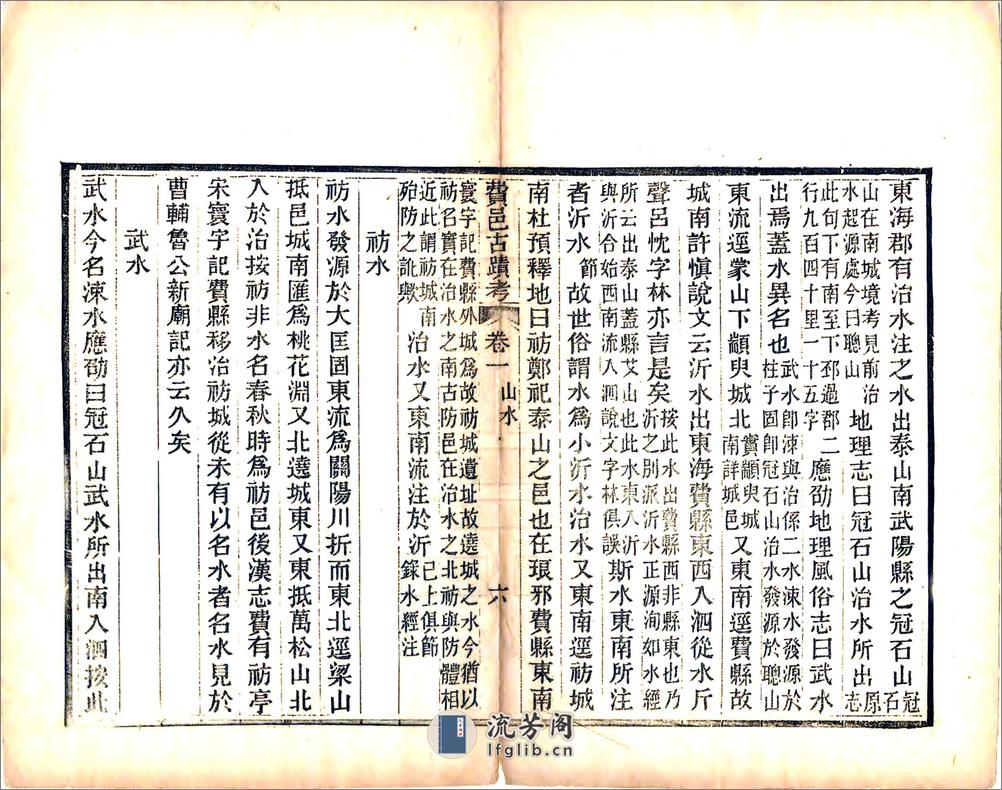 東海郡有治水注之水出泰山南武陽縣之冠石山冠石
山在南城境考見前治水起源處今曰聰山地理志曰冠石山治水所出原志
此句下有南至下邳過郡二行九百四十里一十五字應劭地理風俗志曰武水
出焉蓋水異名也武水卽涑與治係二水涑水發源於柱子固卽冠石山治水發源於聰山
東流逕蒙山下顓臾城北實顓臾城南詳城邑又東南逕費縣故
城南許慎說文云沂水出東海費縣東西入泗從水斤
聲呂忱字林亦言是矣按此水出費縣西非縣東也乃沂之別派沂水正源洵如水經
所云出泰山蓋縣艾山也此水東入沂與沂合始西南流入泗說文字林俱誤斯水東南所注
者沂水節故世俗謂水爲小沂水治水又東南逕祊城
南杜預釋地曰祊鄭祀泰山之邑也在琅邪費縣東南
費邑古蹟考 卷一 山水 六
寰宇記費縣外城爲故祊城遺址故遶城之水今猶以祊名實在治水之南古防邑在治水之北祊與防體相
近此謂祊城南殆防之訛歟治水又東南流注於沂已上俱節錄水經注
祊水
祊水發源於大匡固東流爲關陽川折而東北逕梁山
抵邑城南匯爲桃花淵又北遶城東又東抵萬松山北
入於治按祊非水名春秋時爲祊邑後漢志費有祊亭
宋寰宇記費縣移治祊城從未有以名水者名水見於
曹輔魯公新廟記亦云久矣
武水
武水今名涑水應劭曰冠石山武水所出南入泗按此
流芳阁
lfglib.cn